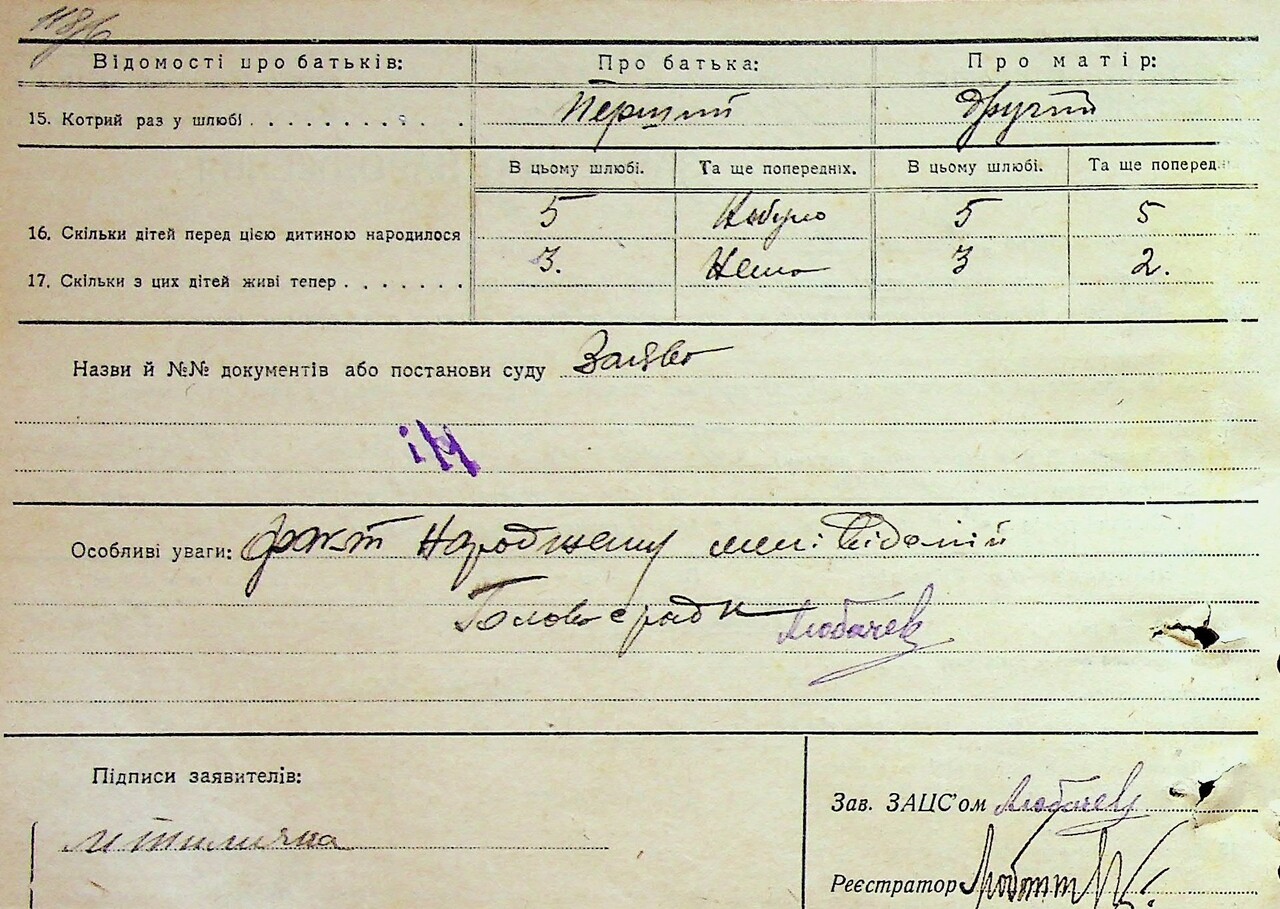 118/б
Відомості про батьків: Про батька: Про матір:
15. Котрий раз у шлюбі . . . . . . . . . . . Перший Другий
В цьому шлюбі. Та ще попередніх. В цьому шлюбі. Та ще поперед
16. Скільки дітей перед цією дитиною народилося 5 Небуло 5 5
17. Скільки з цих дітей живі тепер . . . . . . . 3. Нема 3 2.
Назви й №№ документів або постанови суду Заява
ін
Особливі уваги: факт народження мені відомий
Голова с ради Любачев
Підписи заявителів:
Зав. ЗАЦС'ом Любачев
Реєстратор